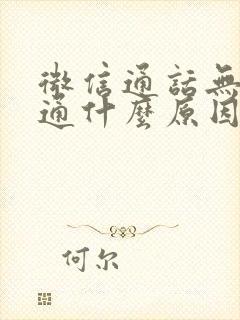 微信通話無
通什麼原因
何尔